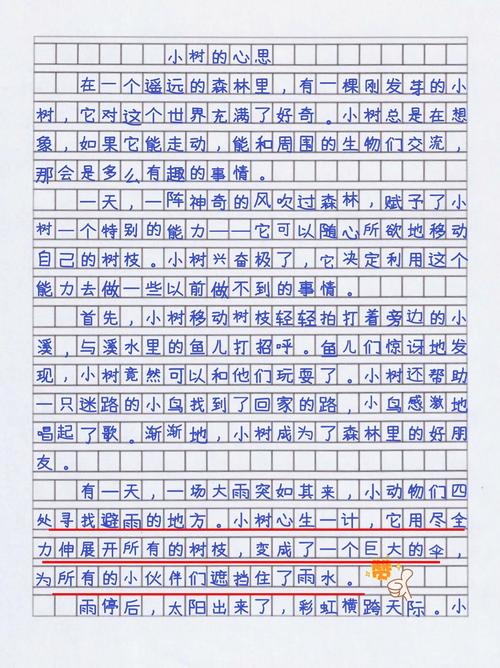 小树的心思
在一个遥远的森林里，有一棵刚发芽的小
树，它对这个世界充满了好奇。小树总是在想
象，如果它能走动，能和周围的生物们交流，
那会是多么有趣的事情。
一天，一阵神奇的风吹过森林，赋予了小
树一个特别的能力——它可以随心所欲地移动
自己的树枝。小树兴奋极了，它决定利用这个
能力去做一些以前做不到的事情。
首先，小树移动树枝轻轻拍打着旁边的小
溪，与溪水里的鱼儿打招呼。鱼儿们惊讶地发
现，小树竟然可以和他们玩耍了。小树还帮助
一只迷路的小鸟找到了回家的路，小鸟感激地
唱起了歌。渐渐地，小树成为了森林里的好朋
友。
有一天，一场大雨突如其来，小动物们四
处寻找避雨的地方。小树心生一计，它用尽全
力伸展开所有的树枝，变成了一个巨大的伞，
为所有的小伙伴们遮挡住了雨水。
雨停后，太阳出来了，彩虹横跨天际。小